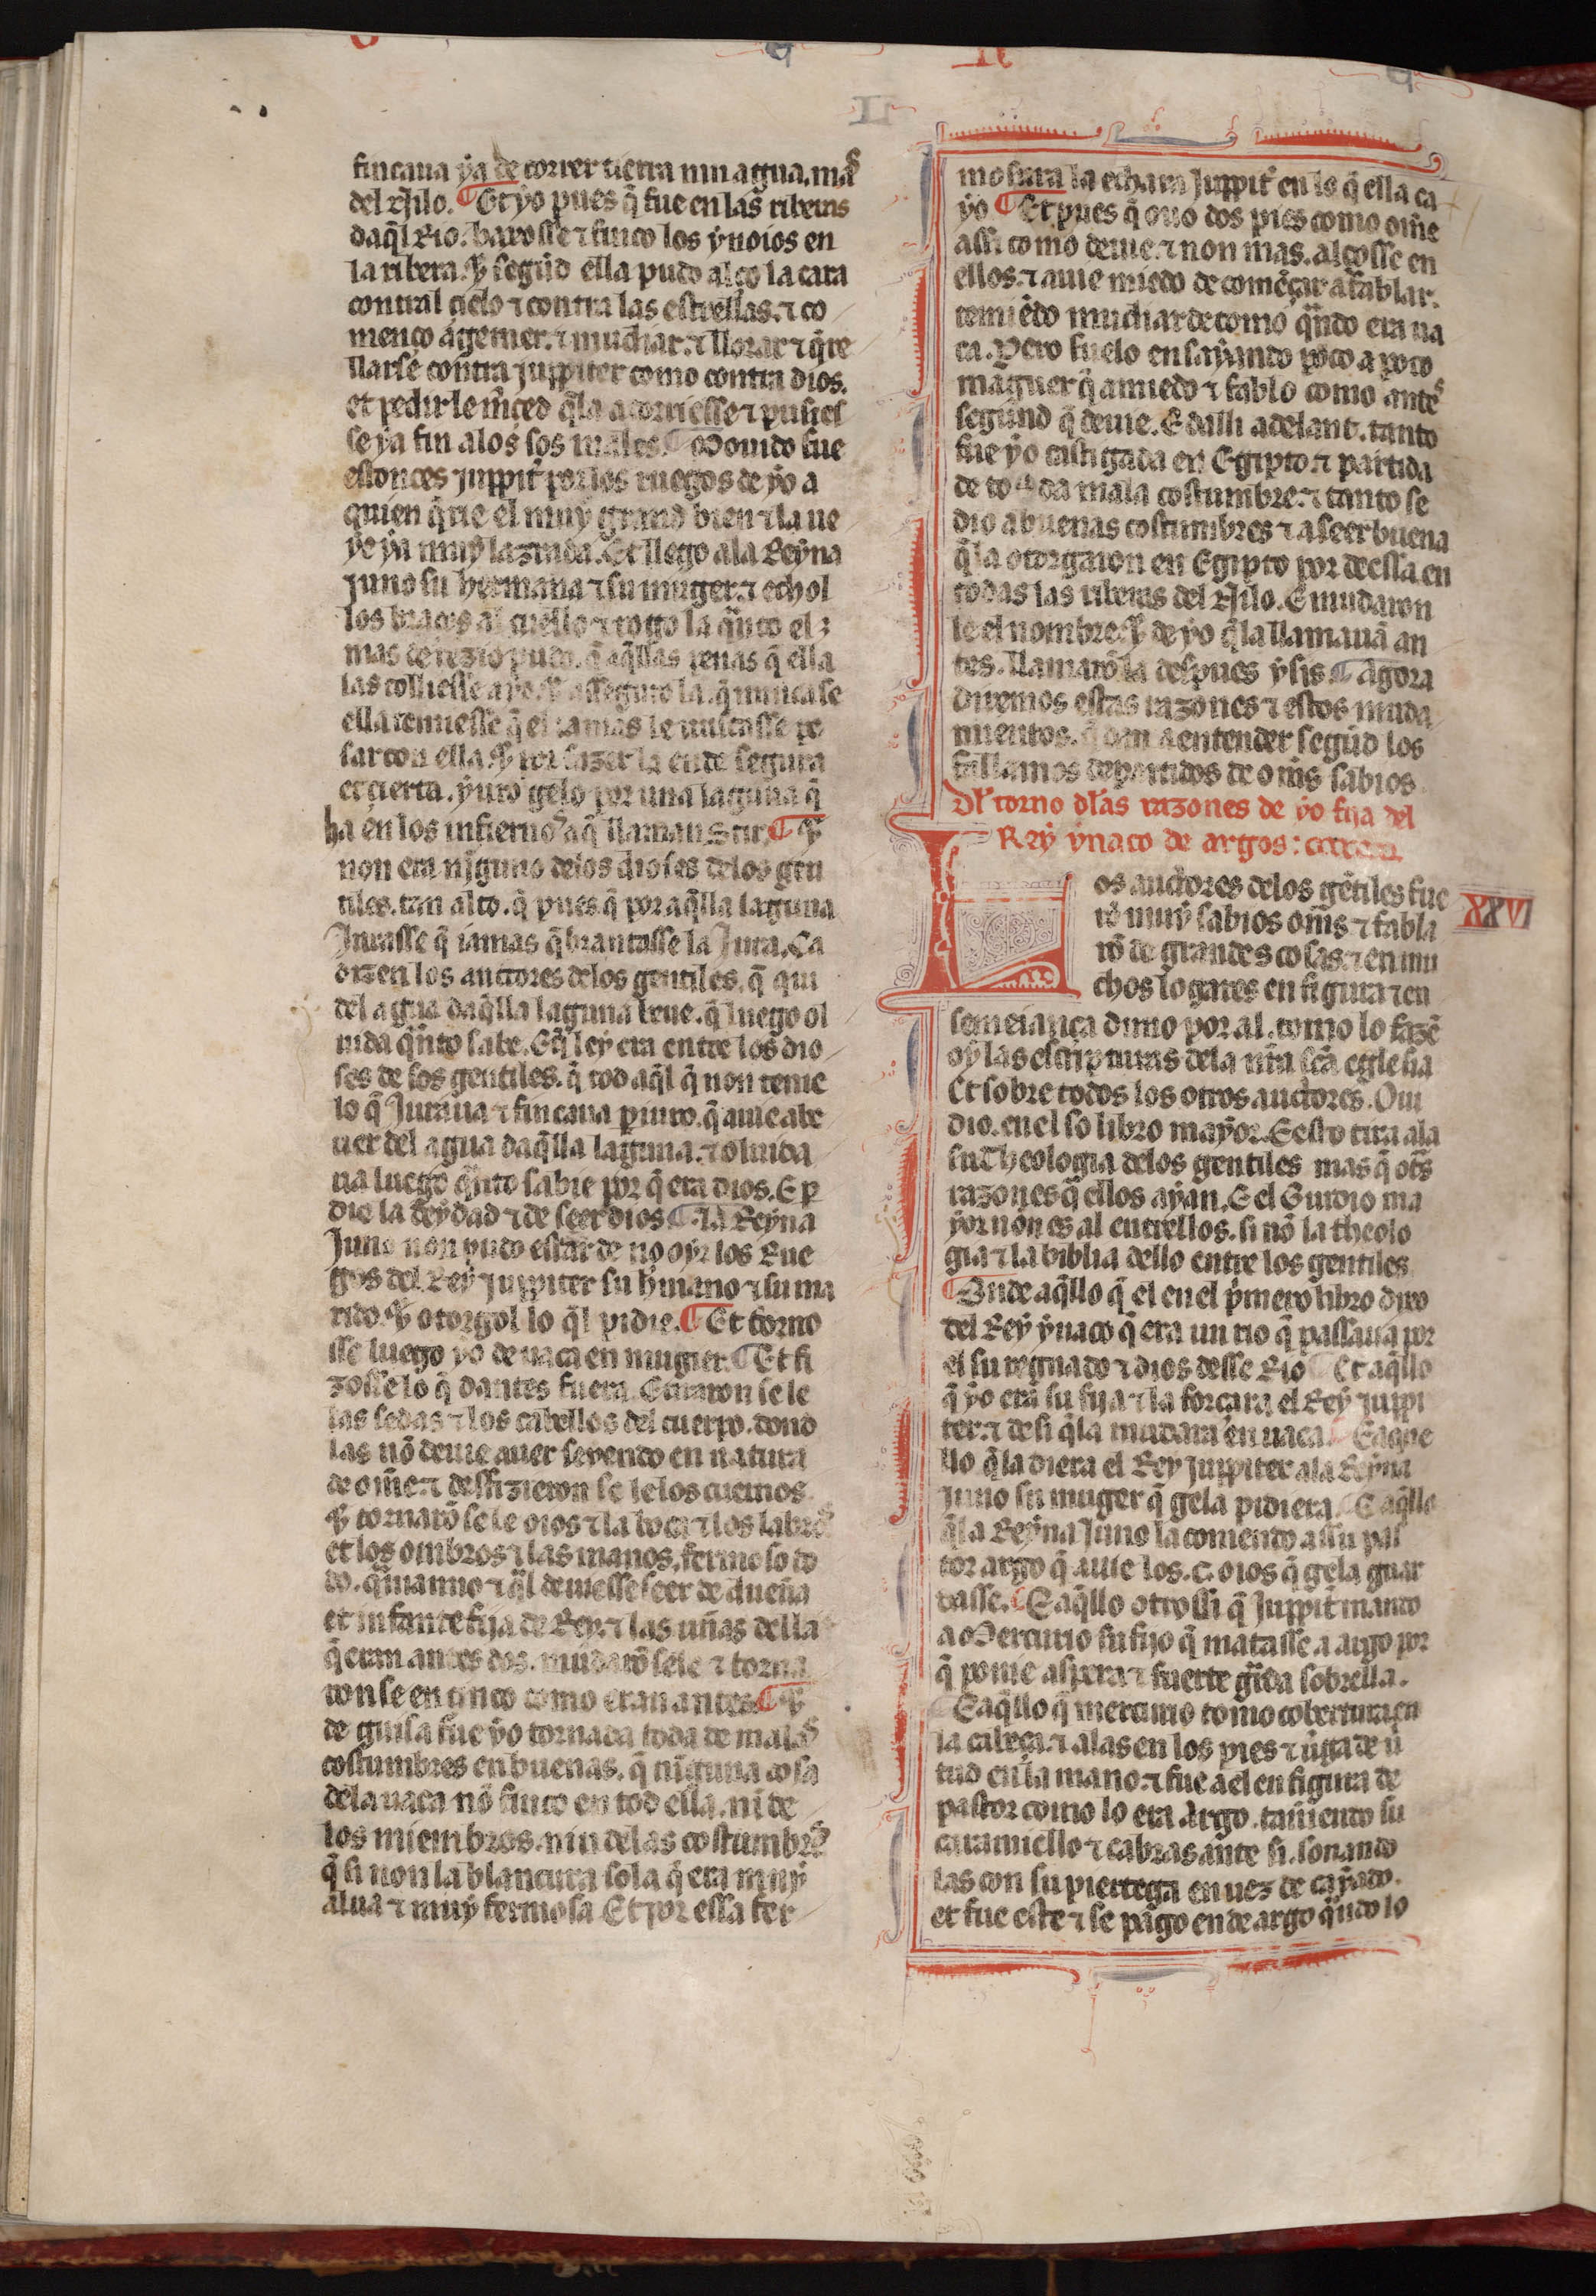 II
fincaua ya de correr tierra nin agua. mas
del Nilo. ¶ Et yo pues q̃ fue en las riberas
daq̃l Rio. baxosse ⁊ finco los ynoios en
la ribera. ⁊ segũd ella pudo alço la cara
contral cielo ⁊ contra las estrellas. ⁊ co
menço a gemer. ⁊ mudiar. ⁊ llorar ⁊ q̃re
llarse contra juppiter como contra dios.
et pedirle m̃ced q̃la acorriesse ⁊ pusies
se ya fin alos sos males. ¶ Mouido fue
estonces juppit̃ por los ruegos de yo a
quien q̃rie el muy grand bien ⁊ la ue
ye ya muy lazrada. Et llego ala Reyna
juno su hermana ⁊ su muger. ⁊ echol
los braços al cuello ⁊ rogo la q̃nto el
mas de rezio pudo. q̃ aq̃llas penas q̃ ella
las tolliesse a yo. ⁊ asseguro la. q̃ nunca se
ella temiesse q̃ el iamas le buscasse pe
sar con ella. ⁊ por fazer la ende segura
et cierta. yuro gelo por una laguna q̃
ha en los infiernos aq̃ llaman Stix. ¶ ⁊
non era nĩguno delos dioses delos gen
tiles. tan alto. q̃ pues q̃ por aq̃lla laguna
Jurasse q̃ iamas q̃brantasse la Jura. Ca
dizen los auctores delos gentiles. q̃ qui
del agua daq̃lla laguna beue. q̃ luego ol
uida q̃nto sabe. Et q̃ ley era entre los dio
ses de los gentiles. q̃ tod aq̃l q̃ non tenie
lo q̃ Juraua ⁊ fincaua periuro. q̃ auie abe
uer del agua daq̃lla laguna. ⁊ oluida
ua luego q̃nto sabie por q̃ era dios. E per
die la deydad ⁊ de seer dios ¶ La Reyna
Juno non pudo estar de no oyr los Rue
gos del Rey Juppiter su h̃mano ⁊ su ma
rido. ⁊ otorgol lo q̃l pidie. ¶ Et torno
sse luego yo de uaca en mugier. ¶ Et fi
zosse lo q̃ dantes fuera. Et tiraron se le
las sedas ⁊ los cabellos del cuerpo. dond
las nõ deuie auer seyendo en natura
de om̃e. ⁊ desfizieron se le los cuernos
⁊ tornarõ se le oios ⁊ la boca ⁊ los labros
et los ombros ⁊ las manos. fermoso to
do. q̃manno ⁊ q̃l deuiesse seer de dueña
et infante fija de Rey. ⁊ las uñas della
q̃ eran antes dos. mudarõ sele ⁊ torna
ron se en cinco como eran antes ¶ ⁊
de guisa fue yo tornada toda de malas
costumbres en buenas. q̃ nĩguna cosa
dela uaca nõ finco en tod ella. ni de
los miembros. nin delas costumbres
q̃ si non la blancura sola q̃ era muy
alua ⁊ muy fermosa Et por essa fer
mosura la echara Juppit̃ en lo q̃ ella ca
yo ¶ Et pues q̃ ouo dos pies como om̃e
assi como deuie. ⁊ non mas. alçosse en
ellos. ⁊ auie miedo de comẽçar a fablar.
temiẽdo mudiar de como q̃ndo era ua
ca. Pero fuelo ensayando poco a poco
maguer q̃ a miedo ⁊ fablo como antes
segund q̃ deuie. E dalli adelant. tanto
fue yo castigada en Egipto. ⁊ partida
de toda mala costumbre. ⁊ tanto se
dio a buenas costumbres ⁊ a seer buena
q̃la otorgaron en Egipto por deessa en
todas las riberas del Nilo. E mudaron
le el nombre. ⁊ de yo q̃la llamauã an
tes. llamarõla despues ysis ¶ Agora
diremos estas razones ⁊ estos muda
mientos. q̃ dan a entender segũd los
fallamos departidos de om̃s sabios
Dl̃ torno dl̃as razones de yo fija del
Rey ynaco de argos:
Los auctores delos gẽtiles fue
XXVI
rõ muy sabios om̃s ⁊ fabla
rõ de grandes cosas. ⁊ en mu
chos logares en figura ⁊ en
semeiança duno por al. como lo fazẽ
oy las escripturas dela nr̃a sc̃a eglesia
Et sobre todos los otros auctores. Oui
dio. en el so libro mayor. E esto tira ala
su Theologia delos gentiles mas q̃ otr̃s
razones q̃ ellos ayan. E el Ouidio ma
yor non es al entrellos. si nõ la theolo
gia ⁊ la biblia dello entre los gentiles
¶ Onde aq̃llo q̃ el en el p̃mero libro dixo
del Rey ynaco q̃ era un rio q̃ passaua por
el su regnado ⁊ dios desse Rio ¶ Et aq̃llo
q̃ yo era su fija ⁊ la forçara el Rey juppi
ter. ⁊ desi q̃la mudara en uaca. ¶ E aque
llo q̃la diera el Rey Juppiter ala Reyna
Juno su muger q̃ gela pidiera. ¶ E aq̃llo
q̃la Reyna Juno la comendo assu pas
tor argo q̃ auie los .c. oios q̃ gela guar
dasse. ¶ E aq̃llo otrossi q̃ Juppit̃ mando
a Mercurio su fijo q̃ matasse a argo por
q̃ ponie aspera ⁊ fuerte g̃rda sobrella.
¶ E aq̃llo q̃ mercurio tomo cobertura en
la cabeça. ⁊ alas en los pies ⁊ uẽga de ũ
tud en la mano. ⁊ fue a el en figura de
pastor como lo era Argo. tañiendo su
caramiello ⁊ cabras ante si. sonando
las con su piertega en uez de cayado.
et fue este ⁊ se pago ende argo q̃ndo lo